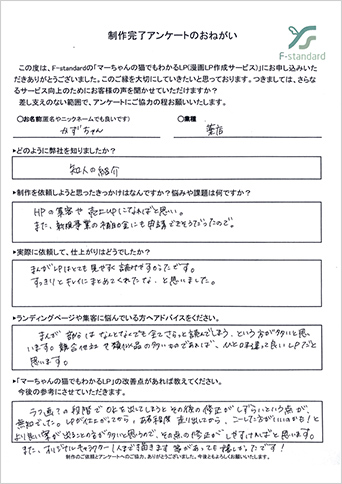 制作完了アンケートのおねがい
F-standard
この度は、F-standardの「マーちゃんの猫でもわかるLP(漫画LP作成サービス)」にお申し込みいた
だきありがとうございました。このご縁を大切にしていきたいと思っております。つきましては、さらな
るサービス向上のためにお客様の声を聞かせていただけますか？
差し支えのない範囲で、アンケートにご協力の程お願いいたします。
○お名前(匿名やニックネームでも良いです) ○業種
みずちゃん
▶どのように弊社を知りましたか？
知人の紹介
▶制作を依頼しようと思ったきっかけはなんですか？悩みや課題は何ですか？
HPの集客や売上UPになればと思い。
また、新規事業の補助金にも申請できそうだったので。
▶実際に依頼して、仕上がりはどうでしたか？
まんがLPはとても見やすく読みやすかったです。
すっきりとキレイにまとめてくれたな、と思いました。
▶ランディングページや集客に悩んでいる方へアドバイスをください。
まんが部分はなんとなくでも全てさらっと読んでしまう、という方が多いと思
います。競合他社や類似品の多いものであれば、人とは違って良いLPだと
思います。
▶「マーちゃんの猫でもわかるLP」の改善点があれば教えてください。
今後の参考にさせていただきます。
ラフ画での段階でOKを出してしまうとその後の修正がしずらいという点が、
無知でした。LPが仕上がってから、ある程度走り出してから、こーした方がいいかも！と
より良い案が出ることの方が多いと思うので、その点の修正がしやすければと思います。
また、オリジナルキャラクター1人まで描きます 等があっても嬉しかったです！
制作のご依頼とアンケートへのご協力、ありがとうございました。今後ともよろしくお願いします。